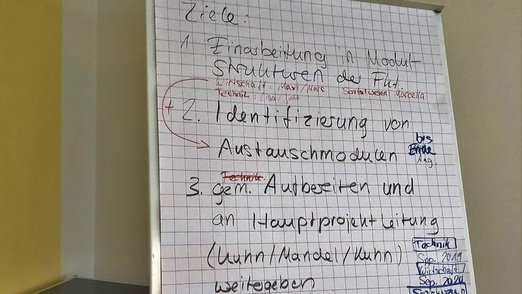 Ziele:
1. Einarbeitung in Modul-
Strukturen der Fkt.
Wirtschaft: Maxi/
Technik:
+ 2. Identifizierung von
Austauschmodulen bis
Ende
Technik
3. gem. Aufbereiten und
an Hauptprojektleitung
(Kuhn/Mandel/Kuhn)
weitergeben
Technik
Sep. 2019
Wirtschaft
Sep. 2020